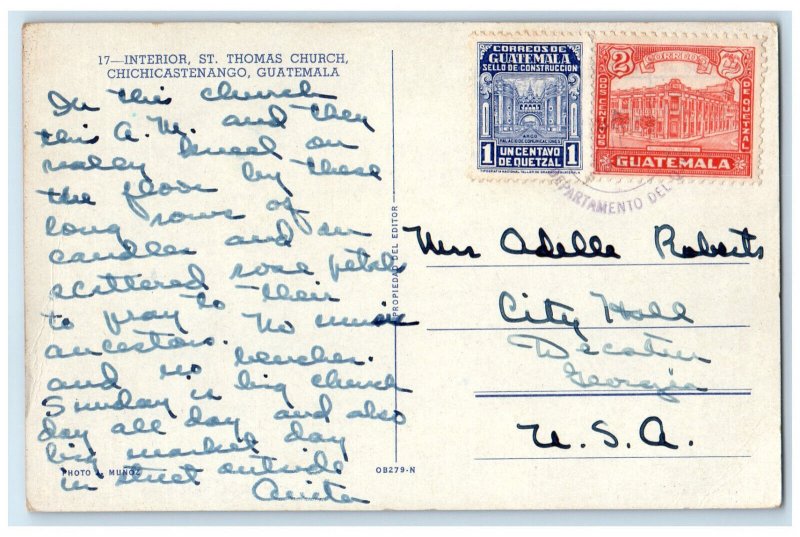 17—INTERIOR, ST. THOMAS CHURCH,
CHICHICASTENANGO, GUATEMALA
In this church
this A.M. and they
really kneel on
the floor by these
long rows of
candles and on
scattered rose petals
to pray to their
ancestors. No music
and no benches.
Sunday is big church
day all day and also
big market day
in street outside
Anita
PHOTO J. MUÑOZ
OB279-N
PROPIEDAD DEL EDITOR
CORREOS DE
GUATEMALA
SELLO DE CONSTRUCCION
ARCO
PALACIO DE COMUNICACIONES
1 UN CENTAVO 1
DE QUETZAL
TIPOGRAFIA NACIONAL
2 CORREOS 2
DOS CENTAVOS
DE QUETZAL
GUATEMALA
DEPARTAMENTO DEL
Adelle Roberts
City Hall
Decatur
Georgia
U.S.A.